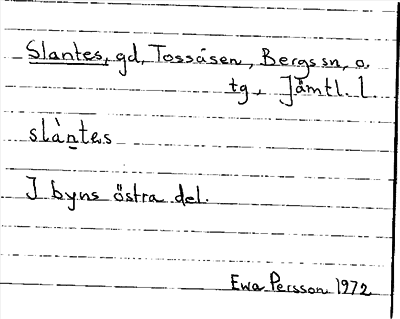 Slantes, gd, Tossåsen, Bergs sn, o.
tg, Jämtl. l.
slàntes
I byns östra del.
Ewa Persson 1972